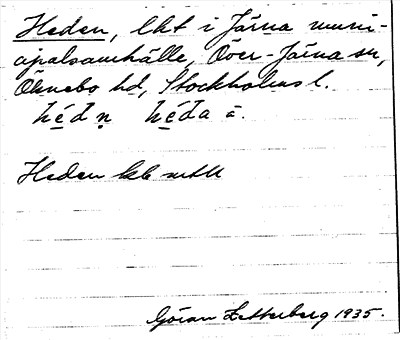 Heden, lht i Järna muni-
cipalsamhälle, Över-Järna sn,
Öknebo hd, Stockholms l.
hēdṇ hēda ā.
Heden
Göran Zetterberg 1935.